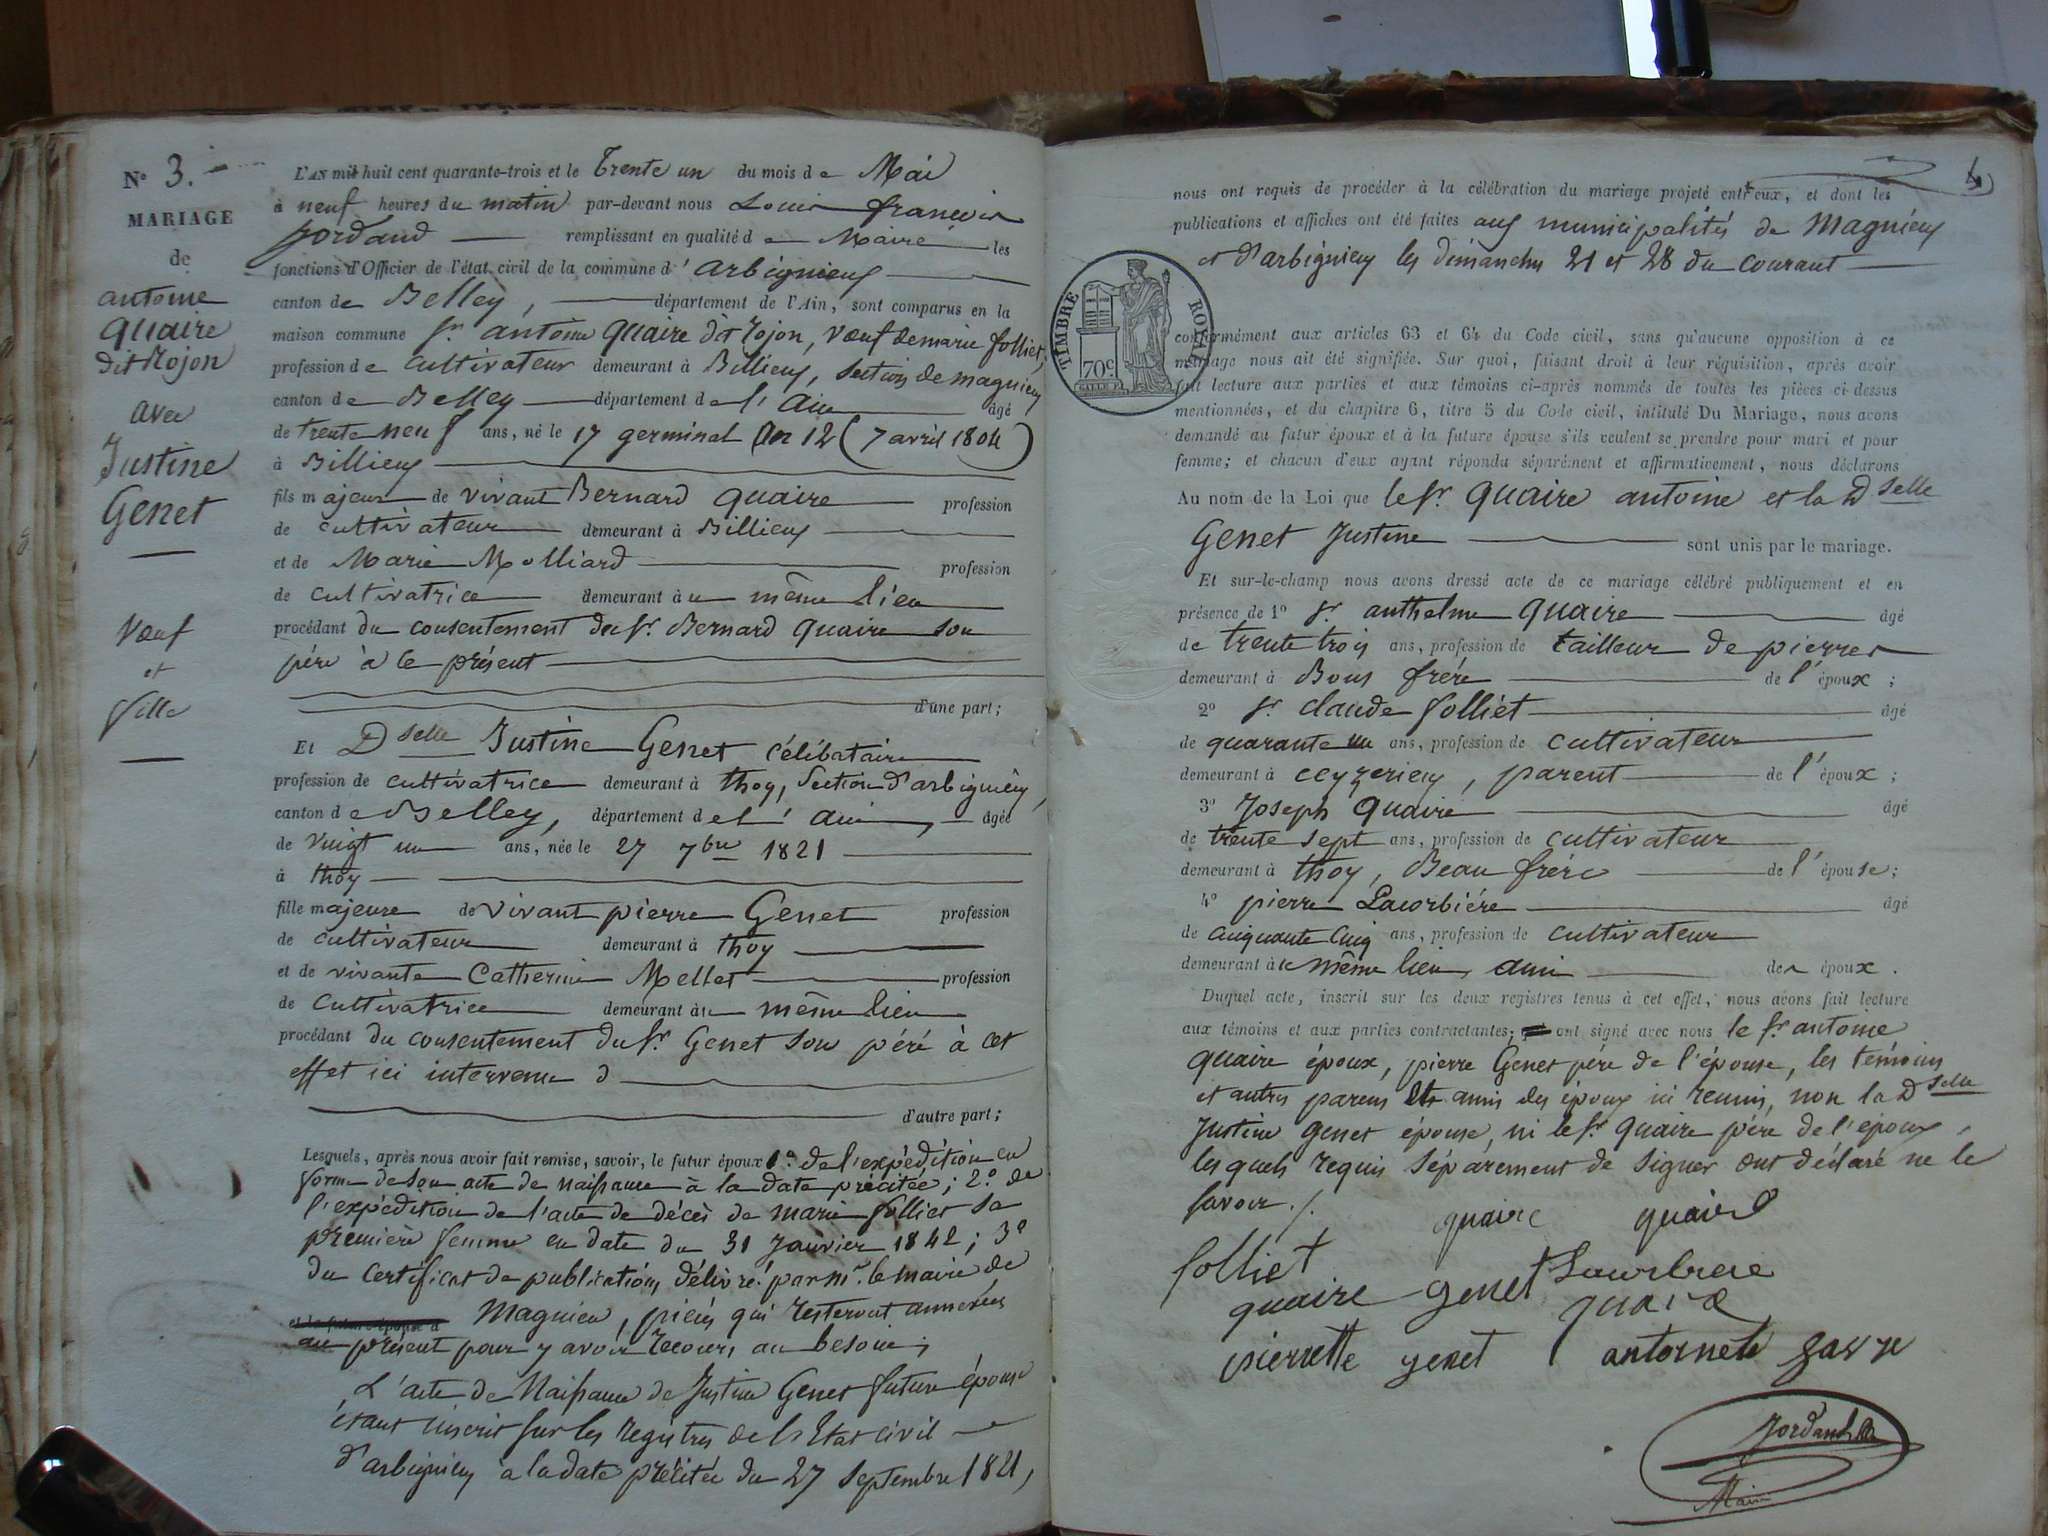 N° 3.
MARIAGE
de
antoine
quaire
dit Rojon
avec
Justine
Genet
Vœuf
et
fille
L'AN mil huit cent quarante-trois et le Trente un du mois de Mai
à neuf heures du matin par-devant nous Louis françois
Jordand remplissant en qualité de Maire les
fonctions d'Officier de l'état civil de la commune d'arbignieu
canton de Belley, département de l'Ain, sont comparus en la
maison commune Sr. antoine Quaire dit Rojon, vœuf de marie folliet,
profession de cultivateur demeurant à Billieu, section de magnieu
canton de Belley département de l'Ain âgé
de trente neuf ans, né le 17 germinal an 12 (7 avril 1804)
à Billieu
fils majeur de vivant Bernard quaire profession
de cultivateur demeurant à Billieu
et de Marie Molliard profession
de cultivatrice demeurant au même lieu
procédant du consentement du Sr. Bernard quaire son
père à ce présent
d'une part;
Et Dselle Justine Genet célibataire
profession de cultivatrice demeurant à thoy, Section d'arbignieu,
canton de Belley, département de l'ain, âgée
de vingt un ans, née le 27 7bre 1821
à thoy
fille majeure de vivant pierre Genet profession
de cultivateur demeurant à thoy
et de vivante Catherine Mellet profession
de cultivatrice demeurant au même lieu
procédant du consentement du Sr. Genet son père à cet
effet ici intervenu
d'autre part;
Lesquels, après nous avoir fait remise, savoir, le futur époux 1° de l'expédition en
forme de son acte de naissance à la date précitée; 2° de
l'expédition de l'acte de décès de marie folliet sa
première femme en date du 31 Janvier 1842; 3°
du certificat de publication, délivré par mr. le maire de
et la future épouse d magnieu, pièces qui resteront annexées
au présent pour y avoir recours au besoin;
L'acte de Naissance de Justine Genet future épouse
étant inscrit sur les registres de l'Etat civil
d'arbignieu à la date précitée du 27 septembre 1821,
4
nous ont requis de procéder à la célébration du mariage projeté entr'eux, et dont les
publications et affiches ont été faites aux municipalités de Magnieu
et d'arbignieu les dimanches 21 et 28 du courant
TIMBRE ROYAL
70c.
conformément aux articles 63 et 64 du Code civil, sans qu'aucune opposition à ce
mariage nous ait été signifiée. Sur quoi, faisant droit à leur réquisition, après avoir
fait lecture aux parties et aux témoins ci-après nommés de toutes les pièces ci-dessus
mentionnées, et du chapitre 6, titre 5 du Code civil, intitulé Du Mariage, nous avons
demandé au futur époux et à la future épouse s'ils veulent se prendre pour mari et pour
femme; et chacun d'eux ayant répondu séparément et affirmativement, nous déclarons
Au nom de la Loi que le Sr. Quaire antoine et la Dselle
Genet Justine sont unis par le mariage.
Et sur-le-champ nous avons dressé acte de ce mariage célébré publiquement et en
présence de 1° Sr. anthelme quaire âgé
de trente trois ans, profession de tailleur de pierres
demeurant à Bons frère de l'époux;
2° Sr. claude folliet âgé
de quarante un ans, profession de cultivateur
demeurant à ceyzerieu, parent de l'époux;
3° Joseph quaire âgé
de trente sept ans, profession de cultivateur
demeurant à thoy, Beau frère de l'épouse;
4° pierre Lacorbière âgé
de cinquante cinq ans, profession de cultivateur
demeurant au même lieu, ami des époux.
Duquel acte, inscrit sur les deux registres tenus à cet effet, nous avons fait lecture
aux témoins et aux parties contractantes; ont signé avec nous le Sr. antoine
quaire époux, pierre Genet père de l'épouse, les témoins
et autres parens et amis des époux ici reunis, non la Dselle
Justine genet épouse, ni le Sr. quaire père de l'époux,
lesquels requis séparement de signer ont déclaré ne le
savoir ./.
quaire quaire
folliet
quaire genet Lacorbiere
quaire
pierrette genet antoinete
Jordand
Maire